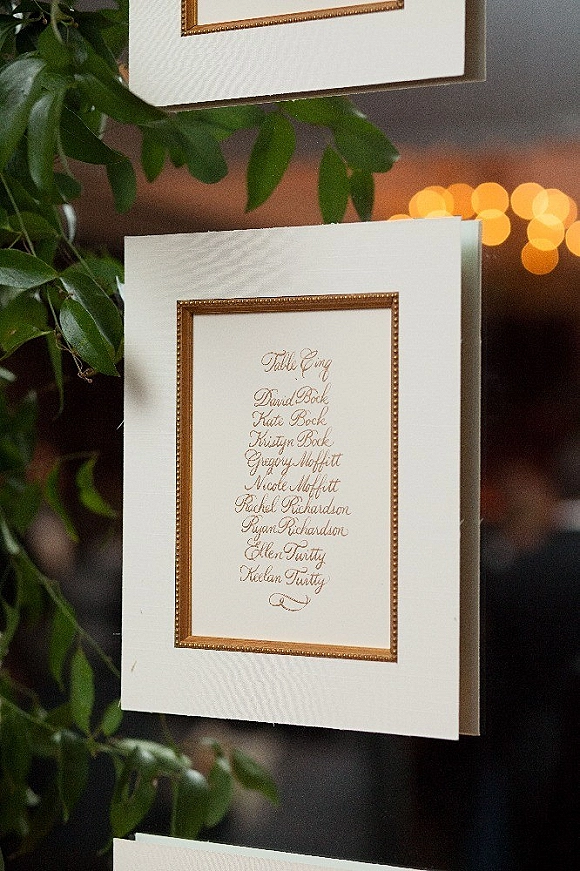 Table Cinq
David Bock
Kate Bock
Kristyn Bock
Gregory Moffitt
Nicole Moffitt
Rachel Richardson
Ryan Richardson
Ellen Turtty
Keelan Turtty